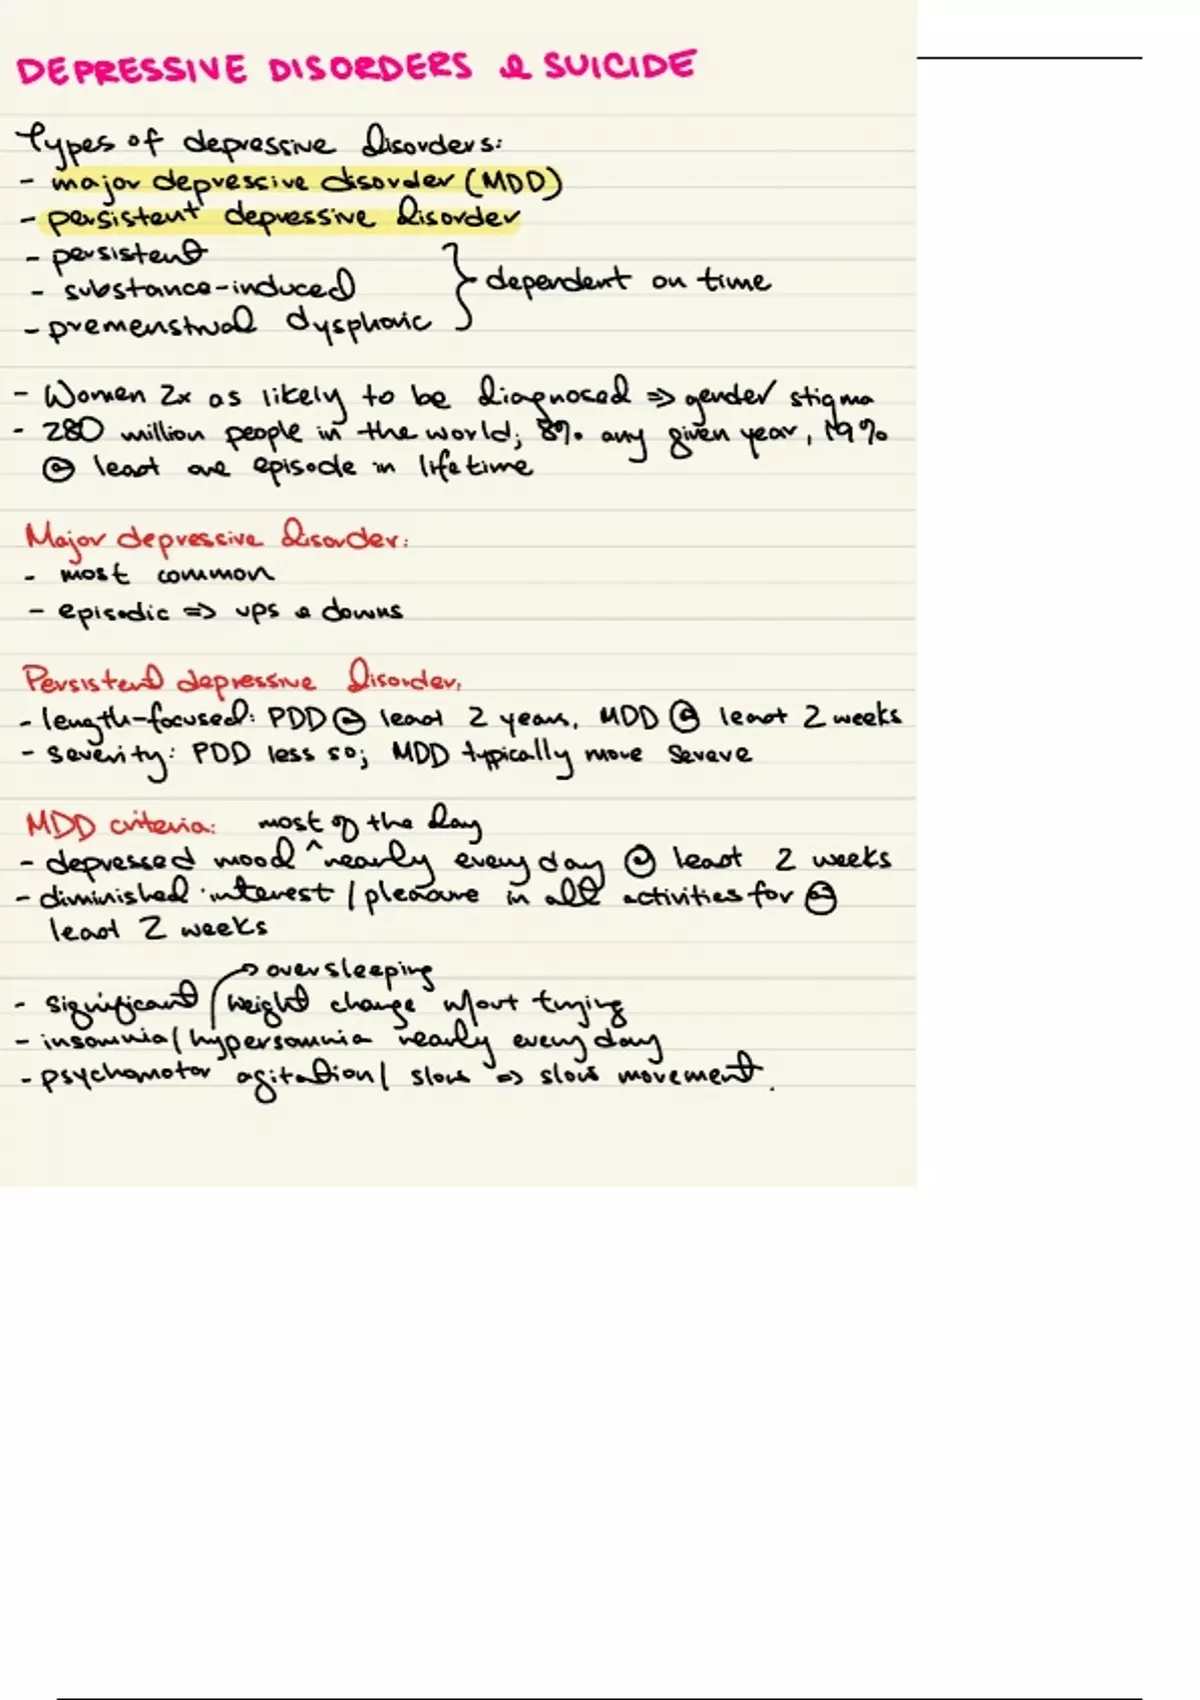 DEPRESSIVE DISORDERS & SUICIDE
Types of depressive disorders:
- major depressive disorder (MDD)
- persistent depressive disorder
- persistent
- substance-induced
- premenstrual dysphoric
dependent on time
- Women 2x as likely to be diagnosed => gender stigma
- 280 million people in the world; 8% any given year, 19%
@ least one episode in lifetime
Major depressive disorder:
- most common
- episodic => ups & downs
Persistent depressive disorder:
- length-focused: PDD @ least 2 years, MDD @ least 2 weeks
- severity: PDD less so; MDD typically more severe
MDD criteria: most of the day
- depressed mood ^ nearly every day @ least 2 weeks
- diminished interest / pleasure in all activities for @
least 2 weeks
→ oversleeping
- significant weight change w/out trying
- insomnia / hypersomnia nearly every day
- psychomotor agitation / slow => slow movement.